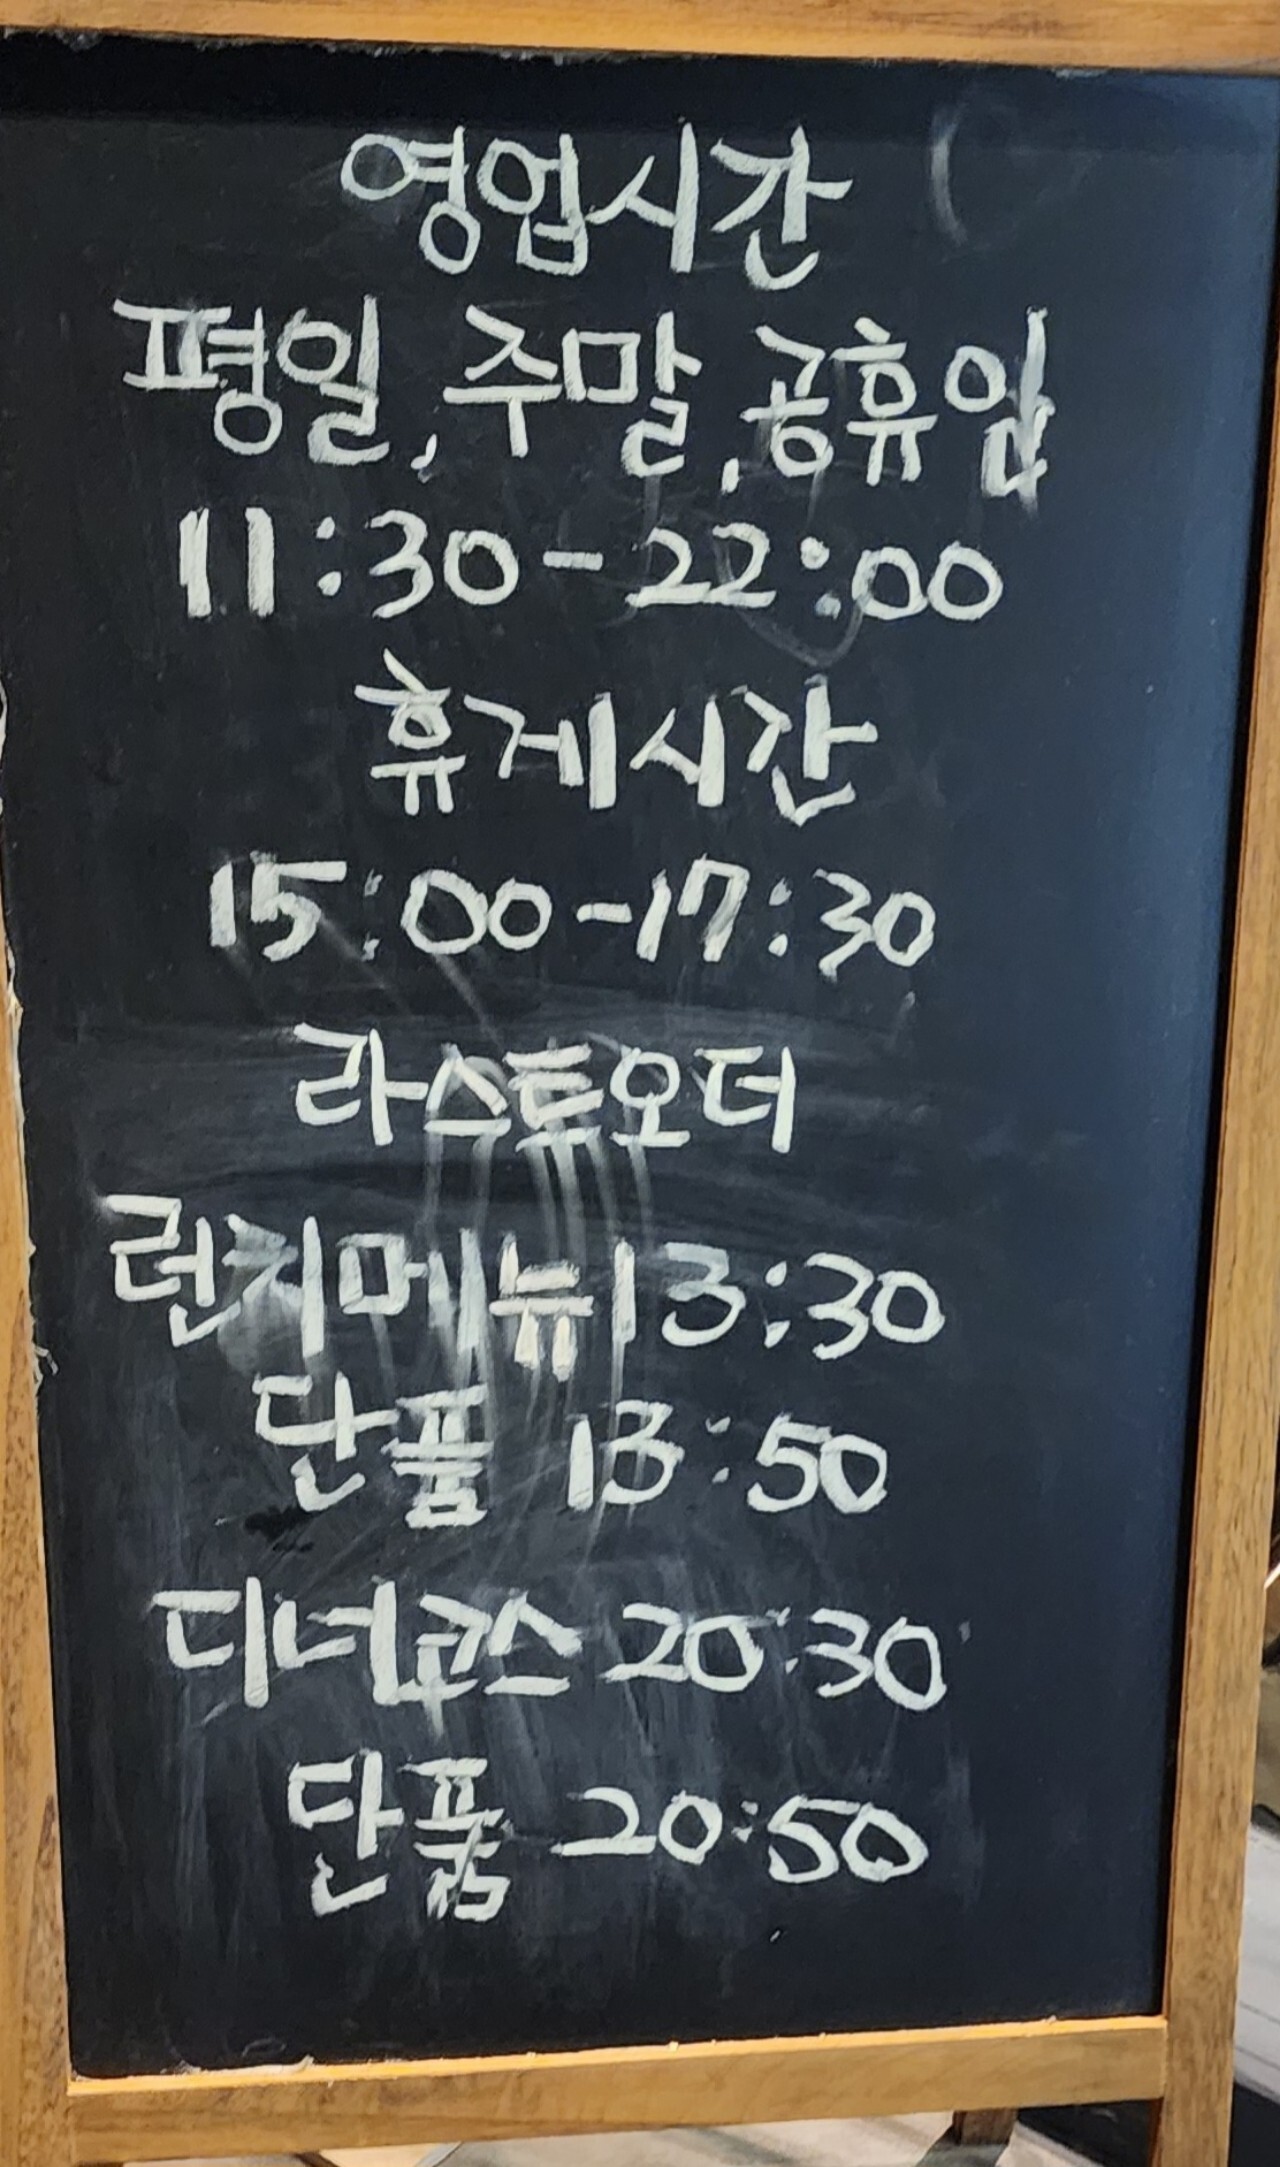 영업시간
평일, 주말, 공휴일
11:30-22:00
휴게시간
15:00-17:30
라스트오더
런치메뉴 13:30
단품 13:50
디너코스 20:30
단품 20:50